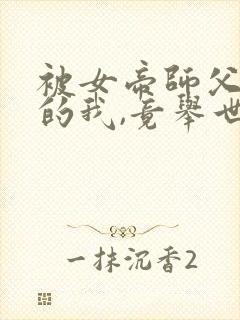 被女帝師父
的我,竟舉世
一抹沉香2